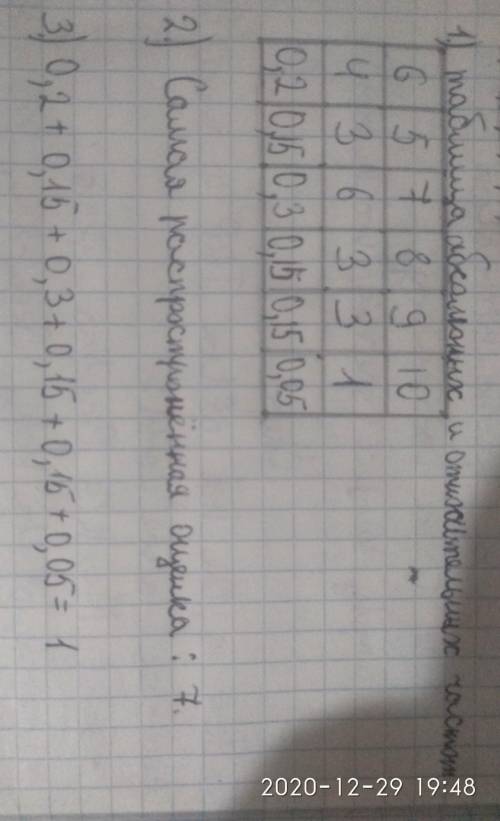 1) таблица абсолютных и относительных частот
6 5 7 8 9 10
4 3 6 3 3 1
0,2 0,15 0,3 0,15 0,15 0,05
2) Самая распространённая оценка: 7.
3) 0,2 + 0,15 + 0,3 + 0,15 + 0,15 + 0,05 = 1
2020-12-29 19:48